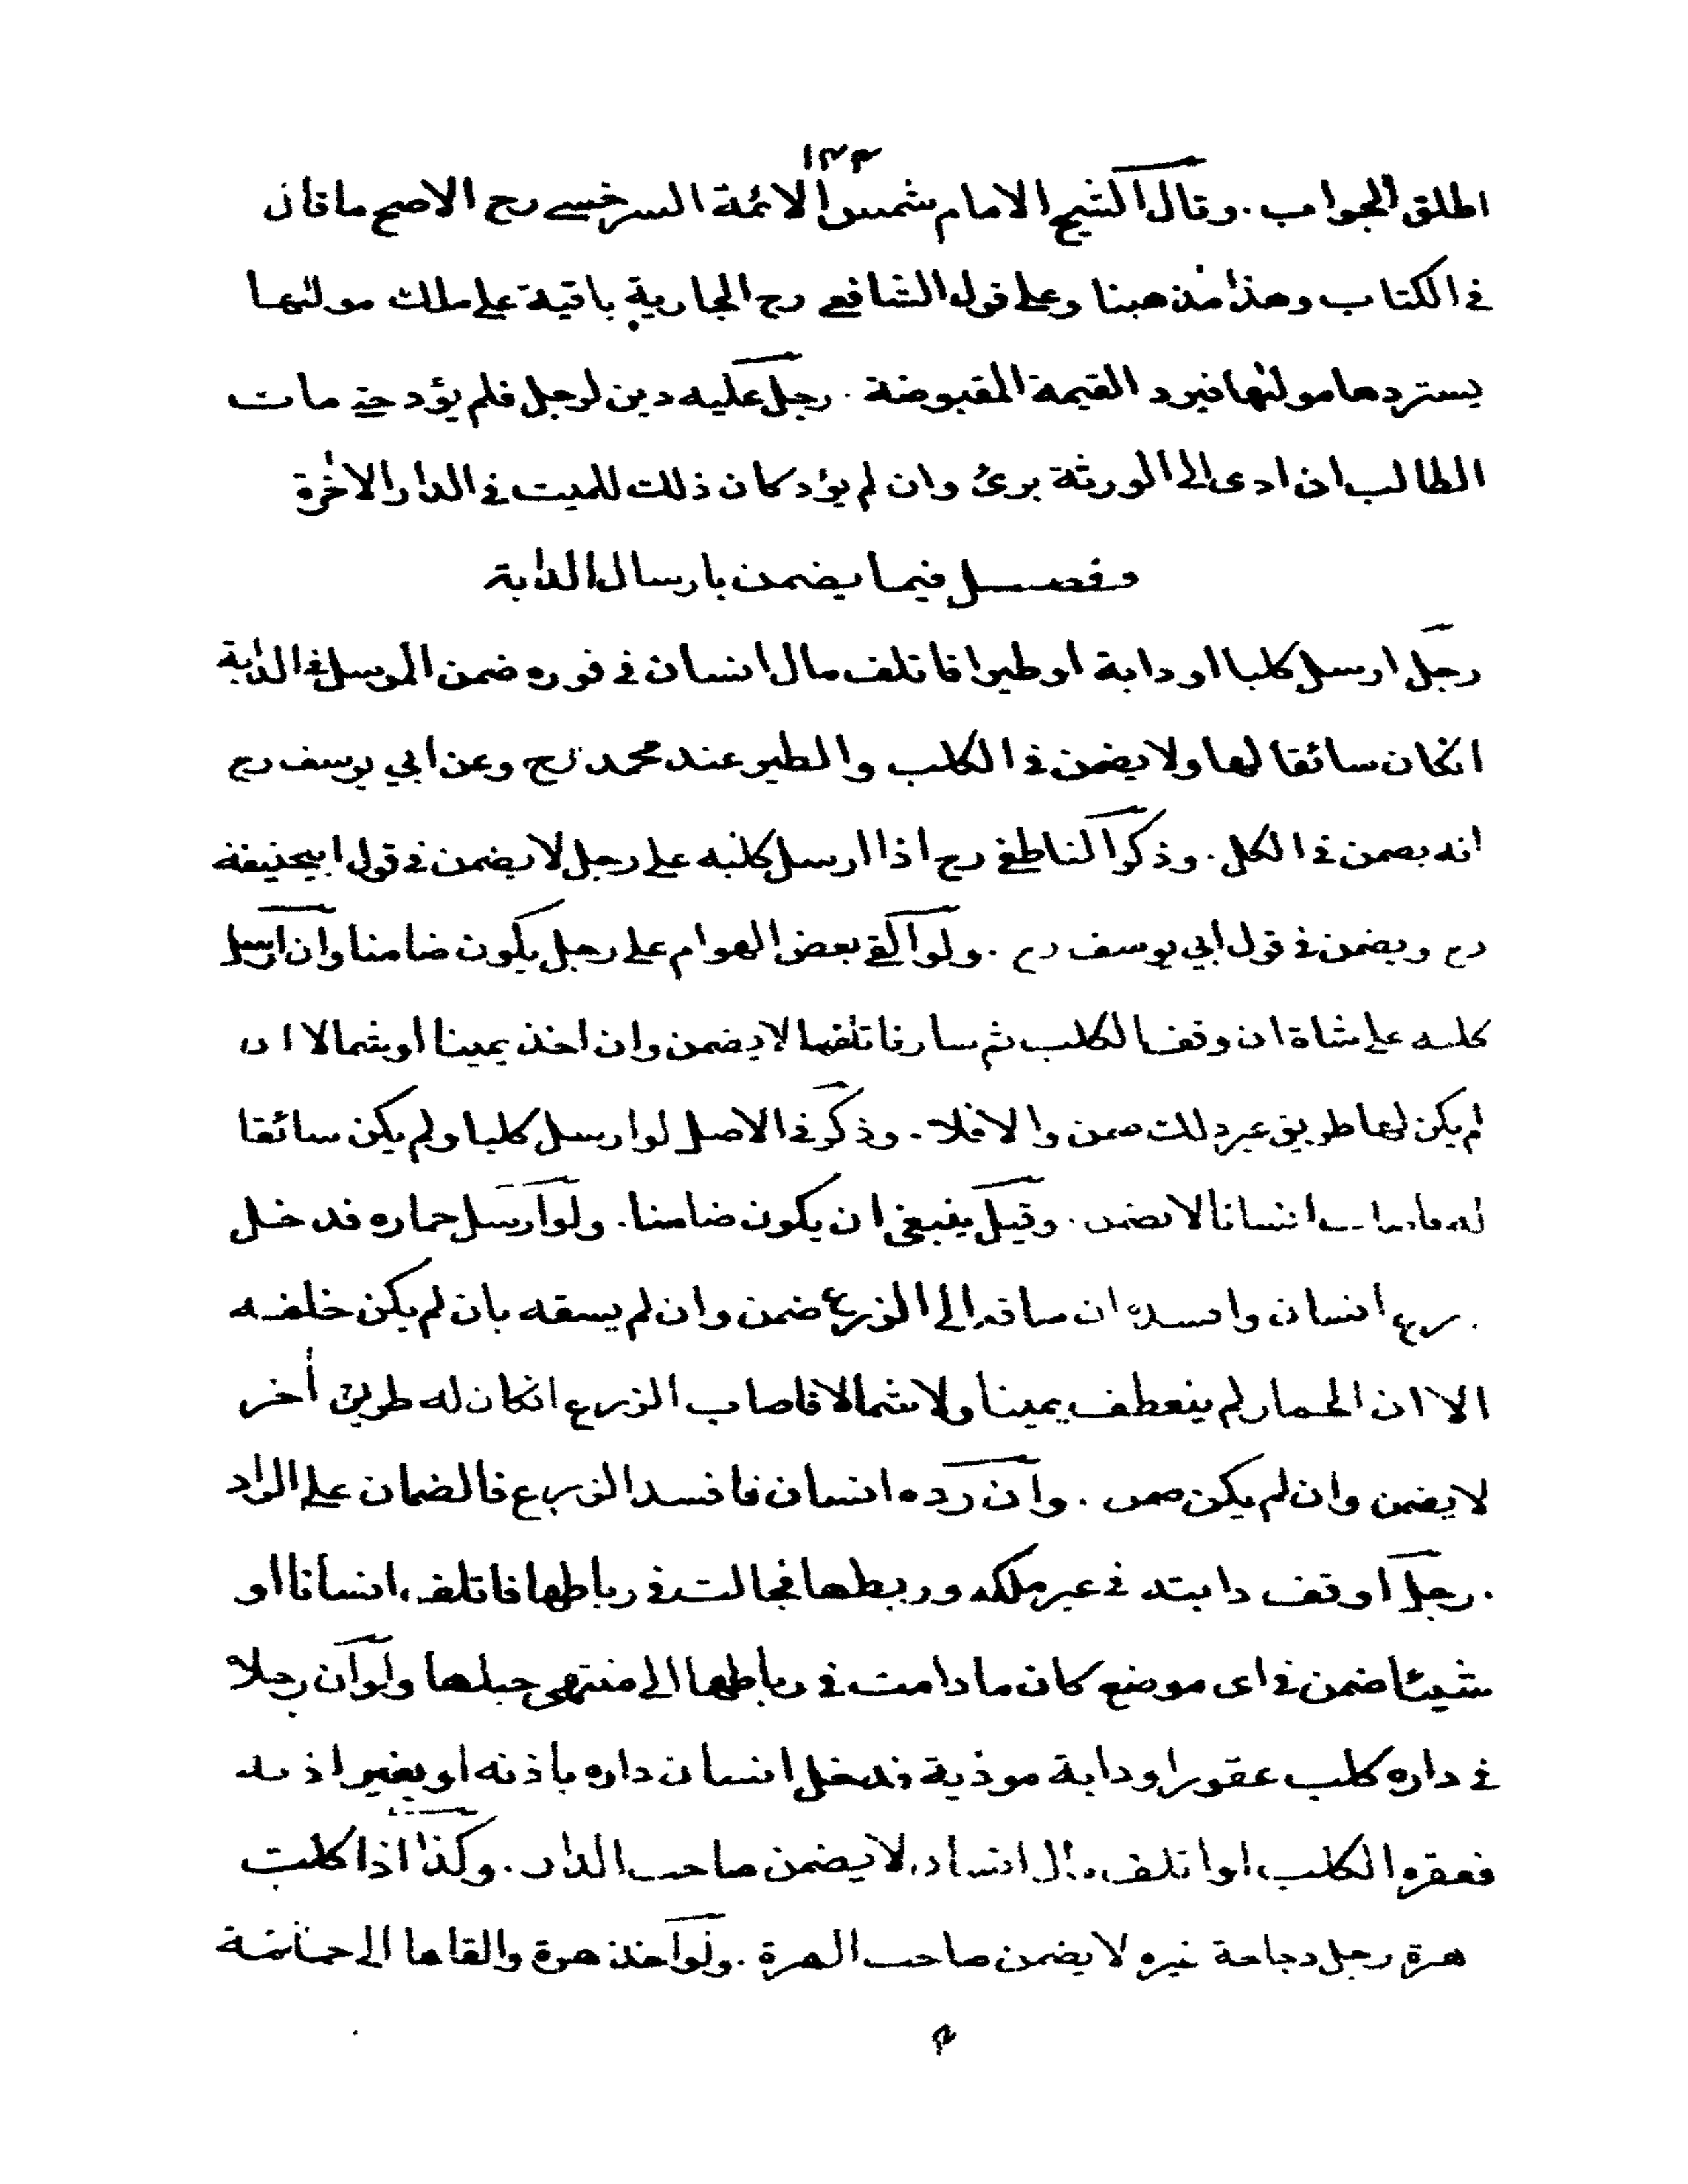 ١٣٣
اطلق الجواب . وقال الشيخ الامام شمس الائمة السرخسي رح الاصح ما قال
في الكتاب وهذا مذهبنا وعلى قول الشافعي رح الجارية باقية على ملك مولٰيها
يستردها مولٰيها فيرد القيمة المقبوضة . رجل عليه دين لرجل فلم يؤد حتى مات
الطالب ان ادى الى الورثة برئ وان لم يؤد كان ذلك للميت في الدار الاخرة
فصل فيما يضمن بارسال الدابة
رجل ارسل كلبا او دابة او طيرا فاتلف مال انسان في فوره ضمن المرسل في الدابة
انكان سائقا لها ولا يضمن في الكلب والطير عند محمد رح وعن ابي يوسف رح
انه يضمن في الكل . وذكر الناطفي رح اذا ارسل كلبه على رجل لا يضمن في قول ابيحنيفة
رح ويضمن في قول ابي يوسف رح . ولو القى بعض الهوام على رجل يكون ضامنا وان ارسل
كلبه على شاة ان وقف الكلب ثم سار فاتلفها لا يضمن وان اخذ يمينا او شمالا ان
لم يكن لها طريق غير ذلك ضمن والا فلا . وذكر في الاصل لو ارسل كلبا ولم يكن سائقا
له فاصاب انسانا لا يضمن . وقيل ينبغي ان يكون ضامنا . ولو ارسل حماره فدخل
زرع انسان وافسده ان ساقه الى الزرع ضمن وان لم يسقه بان لم يكن خلفه
الا ان الحمار لم ينعطف يمينا ولا شمالا فاصاب الزرع انكان له طريق أخر
لا يضمن وان لم يكن ضمن . وان رده انسان فافسد الزرع فالضمان على الراد
. رجل اوقف دابته في غير ملكه وربطها فجالت في رباطها فاتلفت انسانا او
شيئا ضمن في اى موضع كان ما دامت في رباطها الى منتهى حبلها ولو ان رجلا
في داره كلب عقور او دابة موذية فدخل انسان داره باذنه او بغير اذنه
فعقره الكلب او اتلف مال انسان لا يضمن صاحب الدار . وكذا اذا كلبت
هرة رجل دجاجة غيره لا يضمن صاحب الهرة . ولو اخذ هرة والقاها الى حمامة